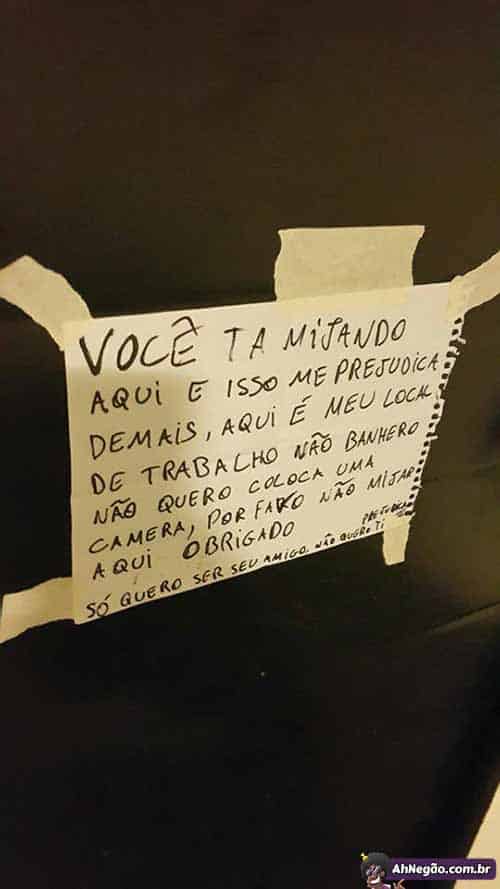 VOCÊ TA MIJANDO
AQUI E ISSO ME PREJUDICA
DEMAIS, AQUI É MEU LOCAL
DE TRABALHO NÃO BANHERO
NÃO QUERO COLOCA UMA
CAMERA, POR FAVO NÃO MIJAR
AQUI OBRIGADO
SÓ QUERO SER SEU AMIGO. NÃO QUERO TI PREJUDICA
AhNegão.com.br